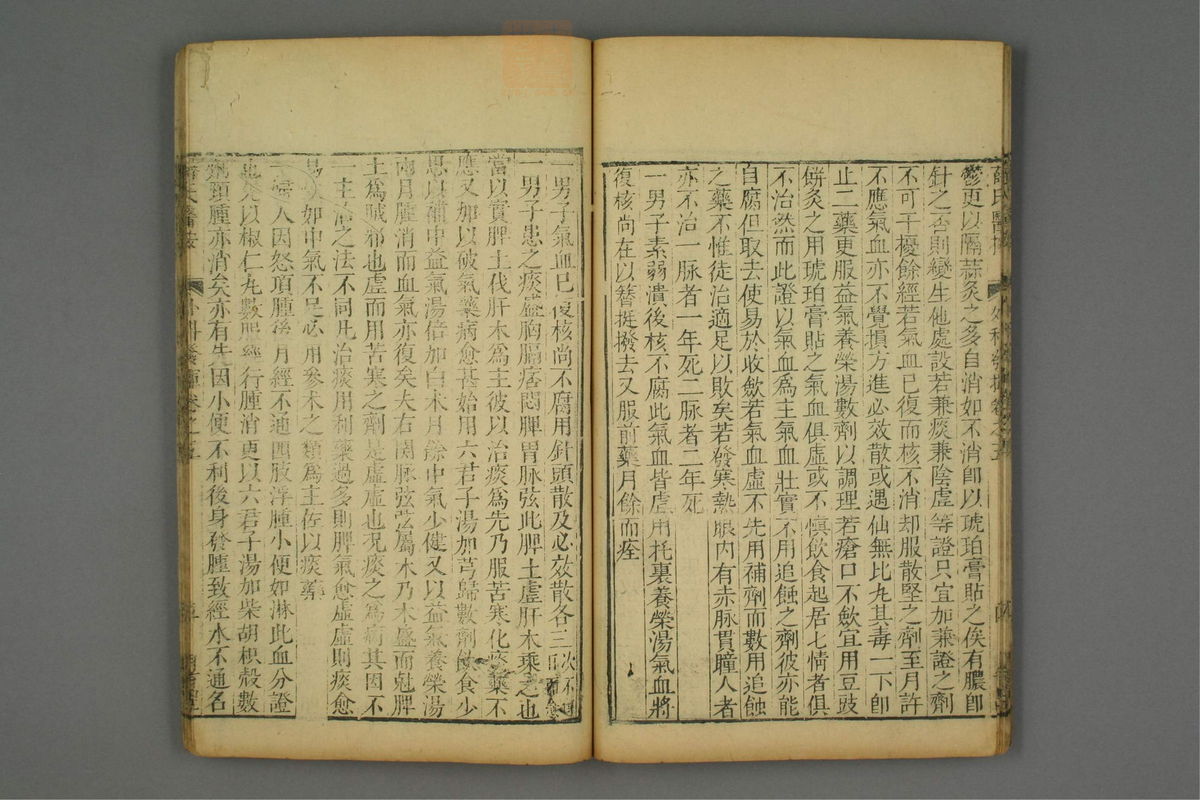 薛氏醫按 外科發揮卷之五
鬱更以隔蒜灸之多自消如不消卽以琥珀膏貼之俟有膿卽
針之否則變生他處設若兼痰兼陰虛等證只宜加兼證之劑
不可干擾餘經若氣血已復而核不消却服散堅之劑至月許
不應氣血亦不覺損方進必效散或遇仙無比丸其毒一下卽
止二藥更服益氣養榮湯數劑以調理若瘡口不歛宜用豆豉
餅灸之用琥珀膏貼之氣血俱虛或不慎飲食起居七情者俱
不治然而此證以氣血爲主氣血壯實不用追蝕之劑彼亦能
自腐但取去使易於收歛若氣血虛不先用補劑而數用追蝕
之藥不惟徒治適足以敗矣若發寒熱眼內有赤脉貫瞳人者
亦不治一脉者一年死二脉者二年死
一男子素弱潰後核不腐此氣血皆虛用托裏養榮湯氣血將
復核尚在以簪挺撥去又服前藥月餘而痊
一男子氣血已復核尚不腐用針頭散及必效散各三次不
一男子患之痰盛胸膈痞悶脾胃脉弦此脾土虛肝木乘之也
當以實脾土伐肝木爲主彼以治痰爲先乃服苦寒化痰藥不
應又加以破氣藥病愈甚始用六君子湯加芎歸數劑飲食少
思以補中益氣湯倍加白朮月餘中氣少健又以益氣養榮湯
兩月腫消而血氣亦復矣夫右關脉弦弦屬木乃木盛而尅脾
土爲賊邪也虛而用苦寒之劑是虛虛也况痰之爲病其因不
一主治之法不同凡治痰用利藥過多則脾氣愈虛虛則痰愈
易 如中氣不足必用參朮之類爲主佐以痰藥
一婦人因怒項腫後月經不通四肢浮腫小便如淋此血分證
也先以椒仁丸數服經行腫消更以六君子湯加柴胡枳殼數
劑頸腫亦消矣亦有先因小便不利後身發腫致經水不通名
薛氏醫按 外科發揮卷之五